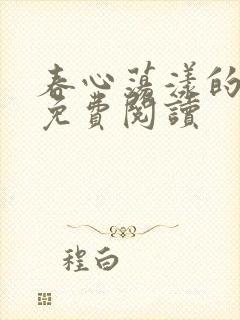 春心蕩漾的
免費閱讀
程白